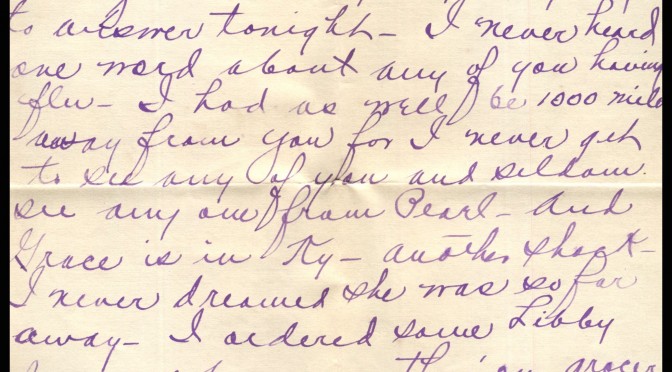 to answer tonight - I never heard
one word about any of you having
flu - I had as well be 1000 mile
away from you for I never get
to see any of you and seldom
see any one from Pearl - And
Grace is in Ky - another shock -
I never dreamed she was so far
away - I ordered some Libby
grocer